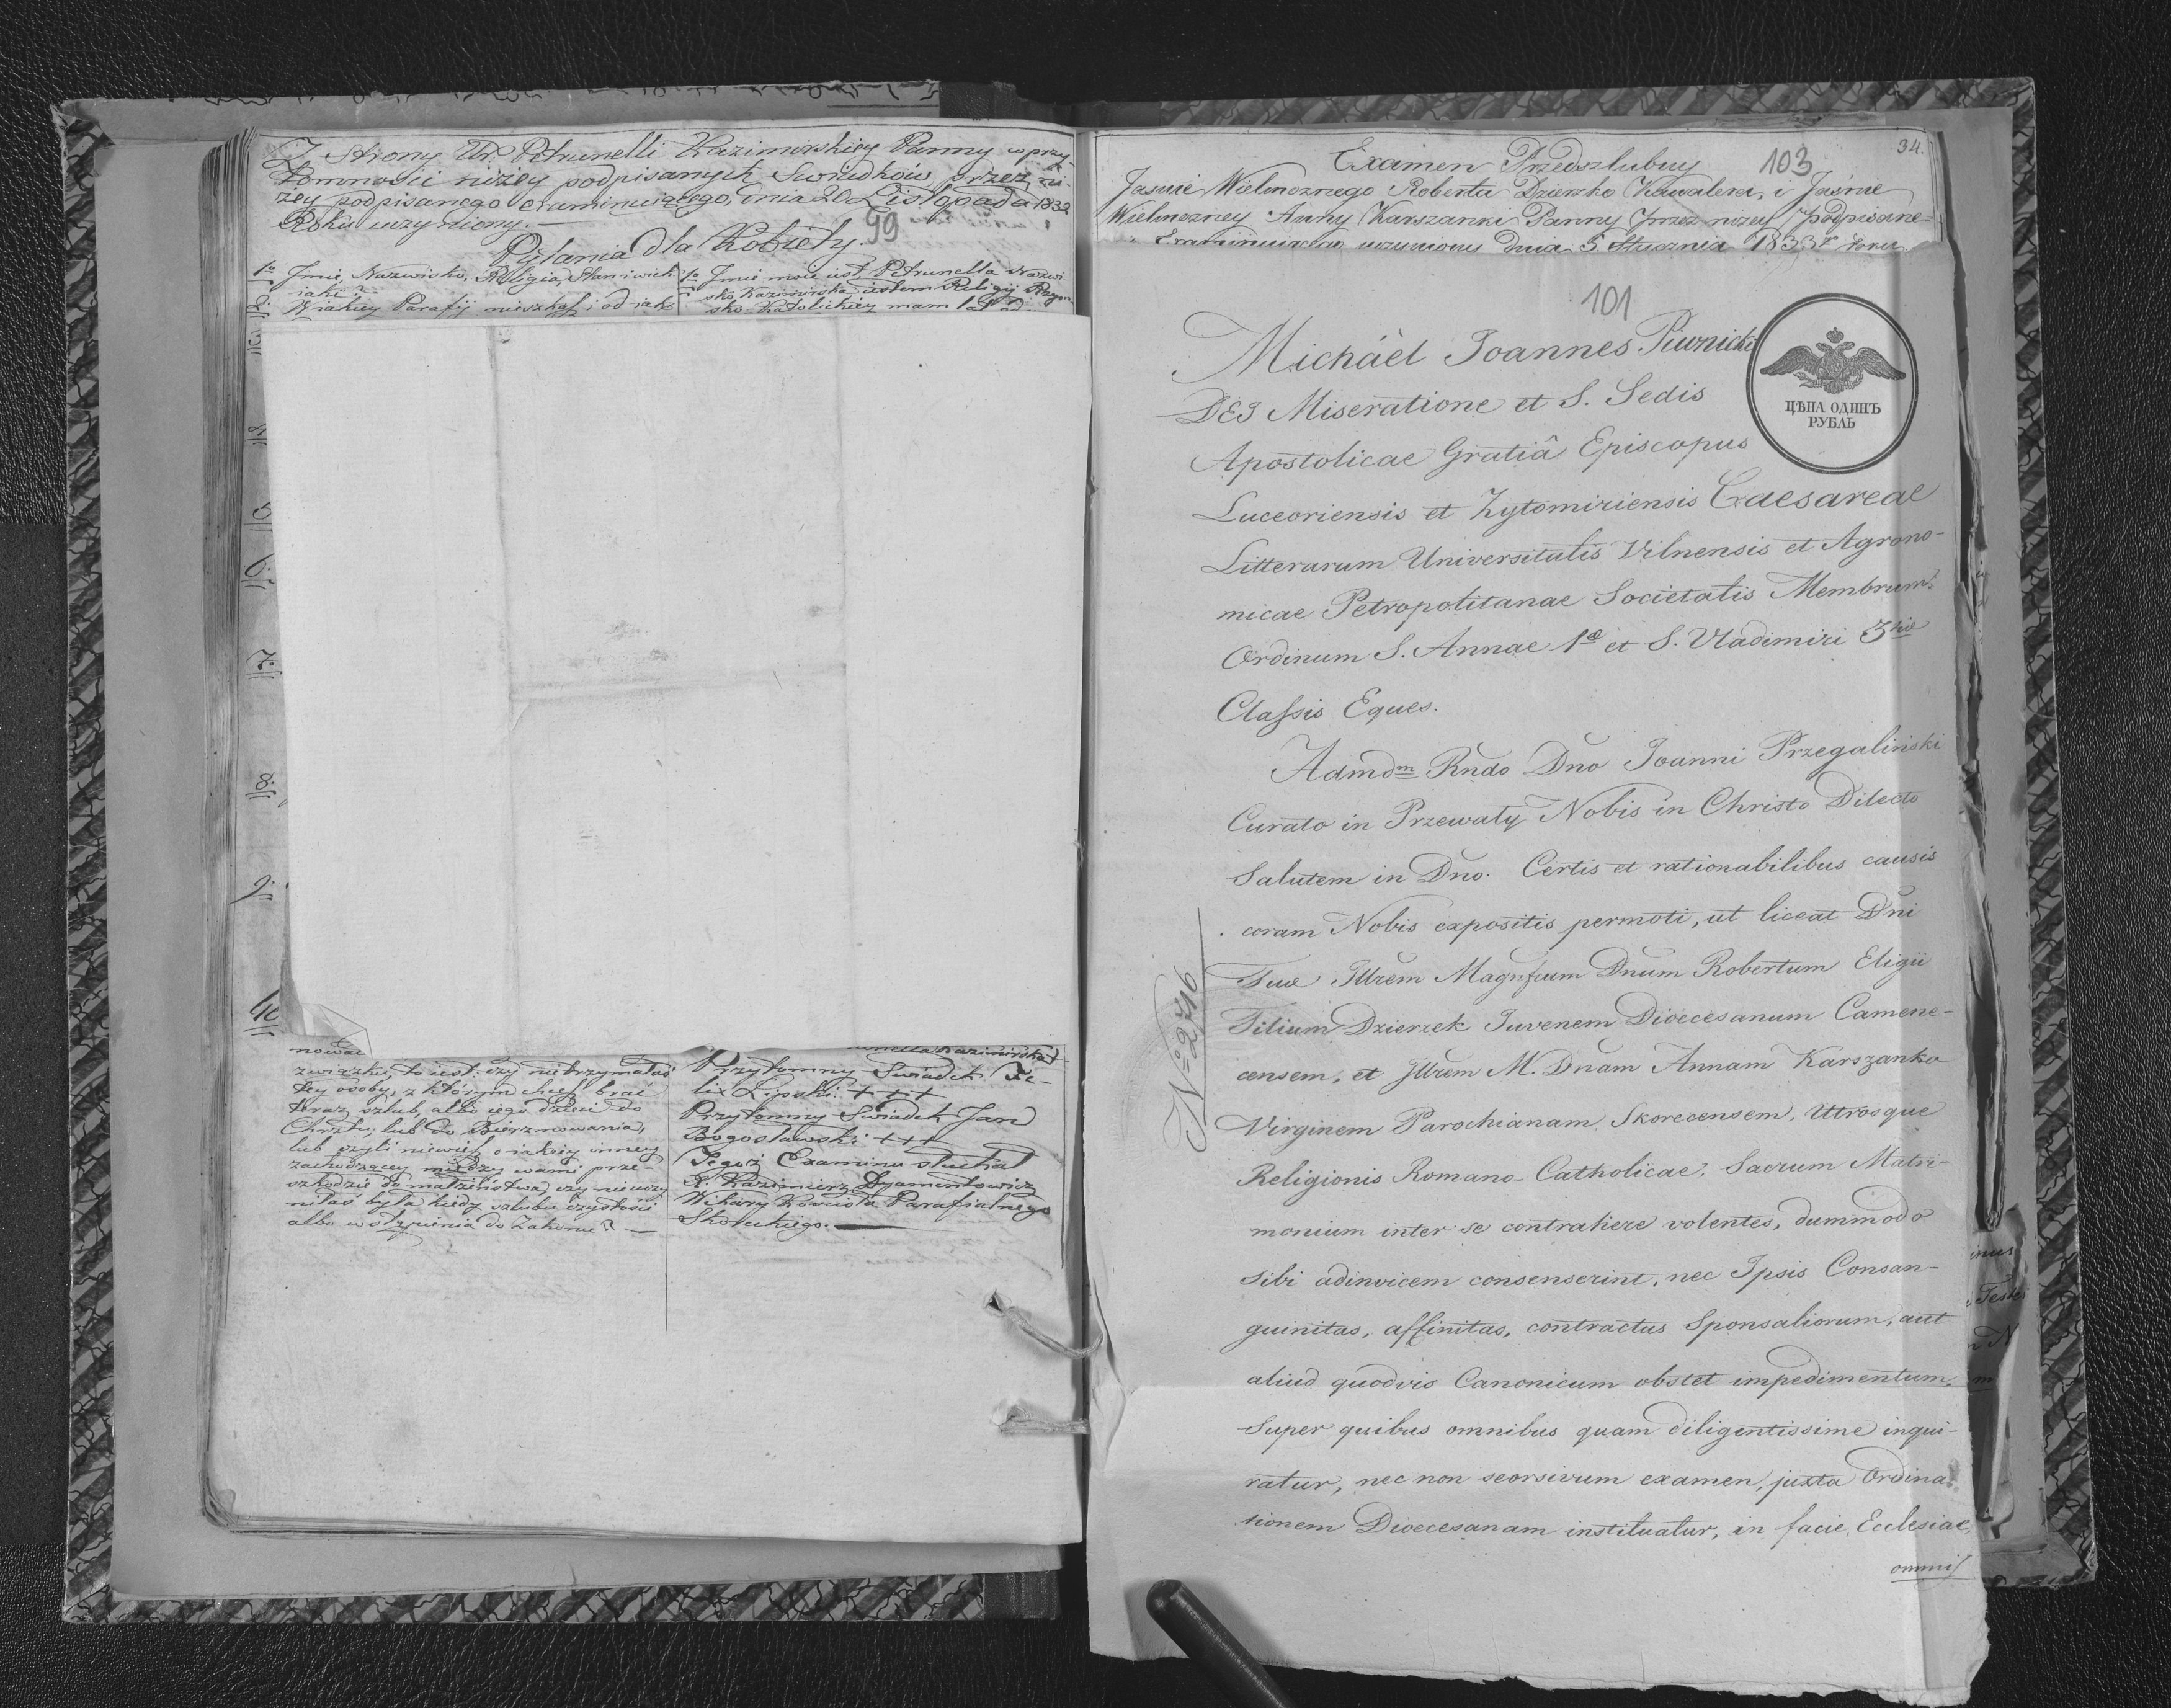 Z strony Ur. Petrunelli Kazimirskiey Panny w przy-
tomności niżey podpisanych Swiadków przez ni-
żey podpisanego examinuiącego, dnia 20 Listopada 1832
Roku uczyniony.
99
Pytania dla Kobiety.
1o Jmie, Nazwisko, Religia, Stan i wiek
iaki?
W iakiey Parafij mieszkasz i od iak
1o Jmie moie iest Petrunella Nazwi
sko Kazimirska iestem Religij Rzym-
sko-Katolickiey mam lat od
5
6.
7.
8.
9.
nowac
związku, to iest: czy nie trzymałaś
tey osoby, z którym chcesz brać
teraz szlub, albo iego dzieci do
Chrztu, lub do Bierzmowania,
lub czyli niewiesz o iakiey inney
zachodzącey między wami prze-
szkodzie do małżeństwa, czy nie uczy
niłaś była kiedy szlubu czystości
albo wstąpienia do Zakonu?
Kazimirska
Przytomny Swiadek Fe-
lix Lipski +++
Przytomny Swiadek Jan
Bogosławski +++
Tegoż Examinu słuchał
X. Kazimierz Dyamentowicz
Wikary Kościoła Parafialnego
Skoreckiego.
34.
Examen Przedszlubny
103
Jaśnie Wielmożnego Roberta Dzierzko Kawalera, i Jaśnie
Wielmożney Anny Karszanki Panny przez niżey podpisane-
Examinuiącego uczyniony dnia 5. Stycznia 1833 Roku
101
Michaël Joannes Piwnicki
DEI Miseratione et S. Sedis
Apostolicae Gratiâ Episcopus
Luceoriensis et Zytomiriensis Caesareae
Litterarum Universitatis Vilnensis et Agrono-
micae Petropolitanae Societatis Membrum.
Ordinum S. Annae 1ae et S. Vladimiri 3tiae
Classis Eques.
ЦѢНА ОДИНЪ
РУБЛЬ
Admdm Rndo Dno Joanni Przegaliński
Curato in Przewały Nobis in Christo Dilecto
Salutem in Dno. Certis et rationabilibus causis
coram Nobis expositis permoti, ut liceat Dni
Tuae Illrem Magnfcum Dnum Robertum Eligii
Filium Dzierzek Juvenem Dioecesanum Camene-
censem, et Illrem M. Dnam Annam Karszanka
Virginem Parochianam Skorecensem, Utrosque
Religionis Romano-Catholicae, Sacrum Matri-
monium inter se contrahere volentes, dummodo
sibi adinvicem consenserint, nec Ipsis Consan-
guinitas, affinitas, contractus Sponsaliorum, aut
aliud quodvis Canonicum obstet impedimentum,
Super quibus omnibus quam diligentissime inqui-
ratur, nec non seorsivum examen, juxta Ordina
tionem Dioecesanam instituatur, in facie Ecclesiae,
omnis
No 2746